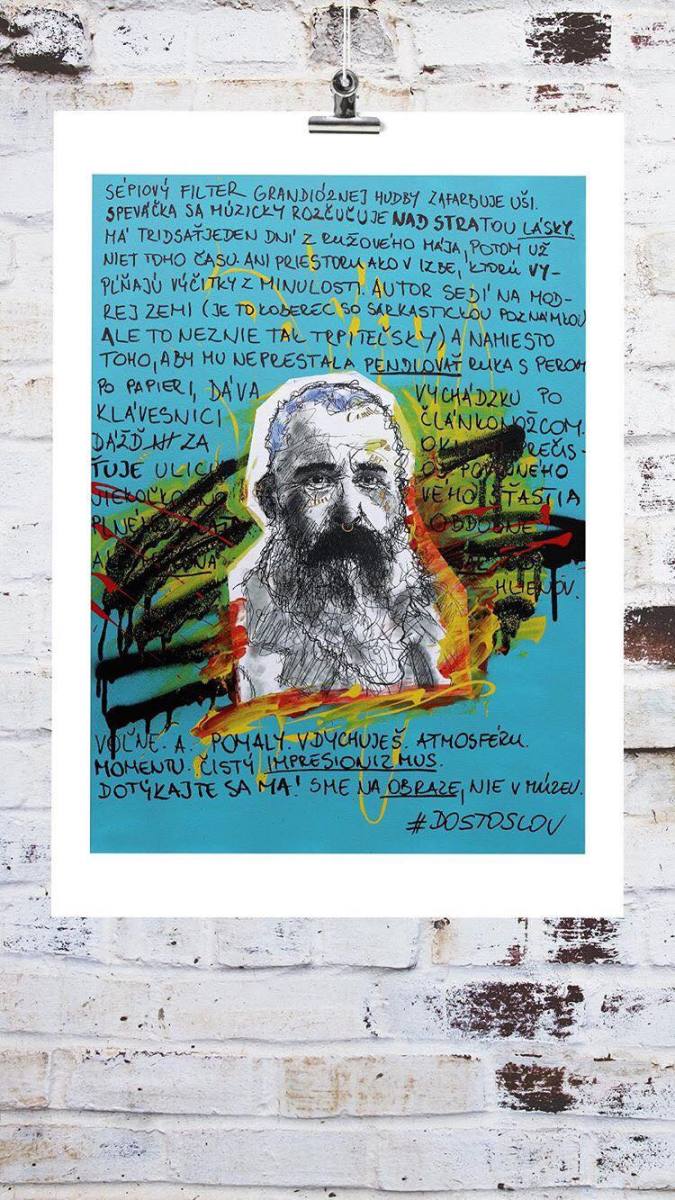 SÉPIOVÝ FILTER GRANDIÓZNEJ HUDBY ZAFARBUJE UŠI.
SPEVÁČKA SA MÚZICKY ROZČUČUJE NAD STRATOU LÁSKY.
MÁ TRIDSAŤJEDEN DNÍ Z RUŽOVÉHO MÁJA, POTOM UŽ
NIET TOHO ČASU ANI PRIESTORU AKO V IZBE, KTORÚ VY-
PĹŇAJÚ VÝČITKY Z MINULOSTI. AUTOR SEDÍ NA MOD-
REJ ZEMI (JE TO KOBEREC SO SARKASTICKOU POZNÁMKOU
ALE TO NEZNIE TAK TRPITEĽSKY) A NAMIESTO
TOHO, ABY MU NEPRESTALA PENDLOVAŤ RUKA S PEROM
PO PAPIERI, DÁVA VYCHÁDZKU PO
KLÁVESNICI ČLÁNKONOŽCOM.
DÁŽĎ ZA
ŤUJE ULICU
VÉHO ŠŤASTIA
OBDOBNE
HLIENOV.
VOĽNE. A. POMALY. VDYCHUJEŠ. ATMOSFÉRU.
MOMENTU. ČISTÝ IMPRESIONIZMUS.
DOTÝKAJTE SA MA! SME NA OBRAZE, NIE V MÚZEU.
#DOSTOSLOV